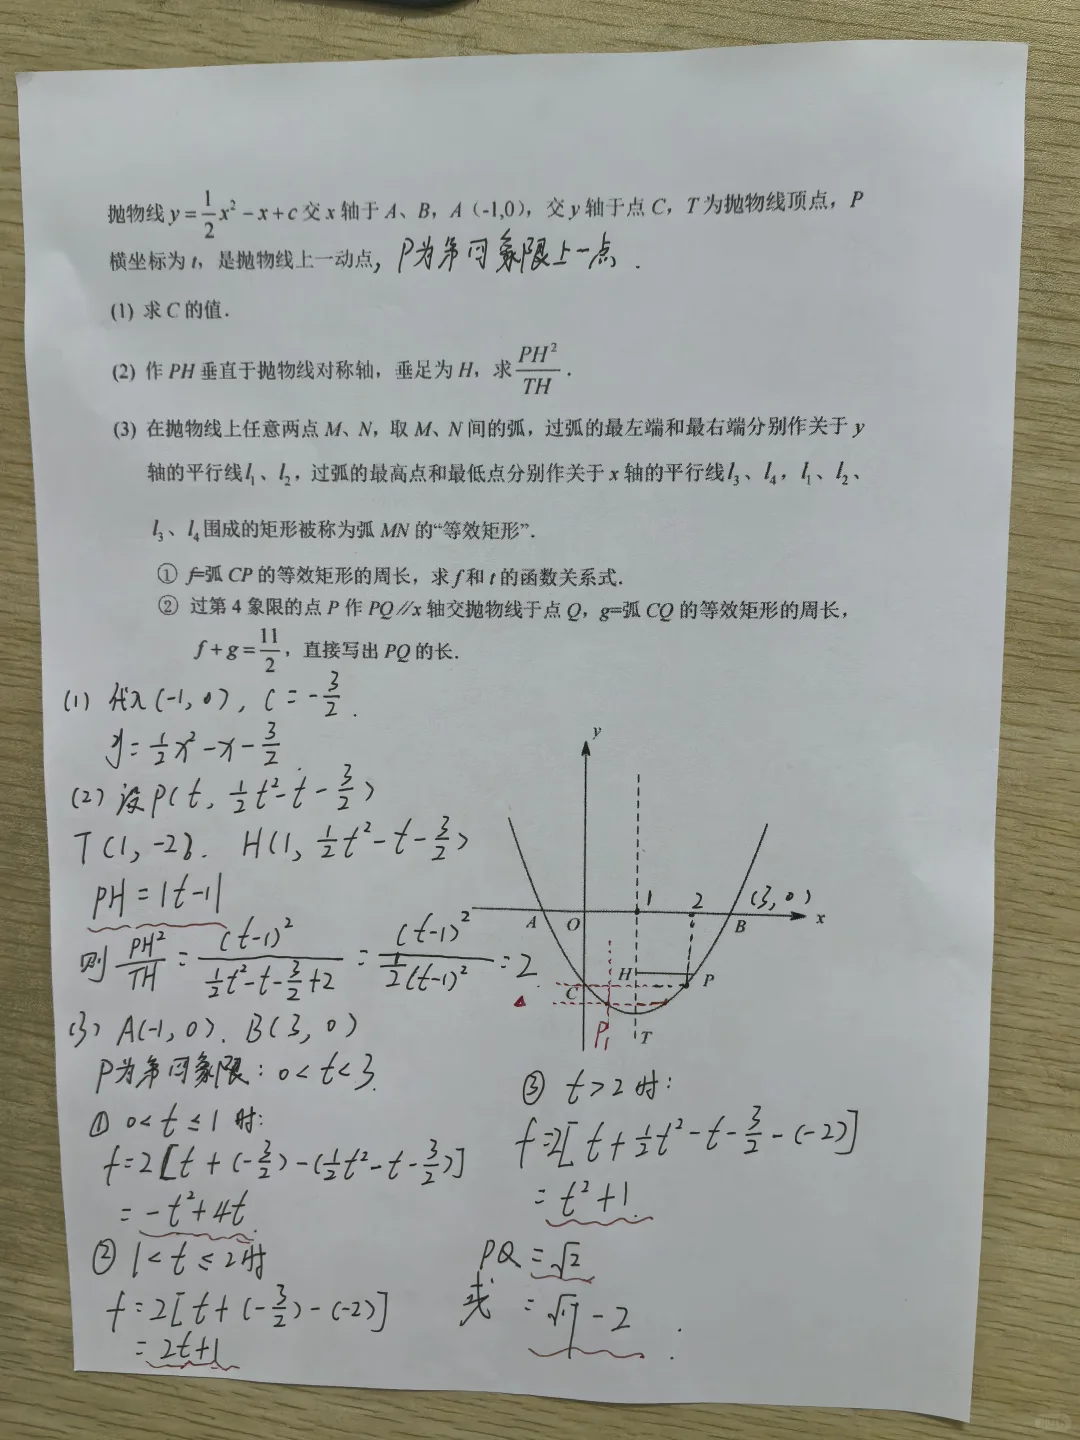 抛物线 y = \frac{1}{2}x² − x + c 交 x 轴于 A、B，A（-1,0），交 y 轴于点 C，T 为抛物线顶点，P
横坐标为 t，是抛物线上一动点，P为第四象限上一点．
(1) 求 C 的值．
(2) 作 PH 垂直于抛物线对称轴，垂足为 H，求 \frac{PH²}{TH}．
(3) 在抛物线上任意两点 M、N，取 M、N 间的弧，过弧的最左端和最右端分别作关于 y
轴的平行线 l₁、l₂，过弧的最高点和最低点分别作关于 x 轴的平行线 l₃、l₄，l₁、l₂、
l₃、l₄ 围成的矩形被称为弧 MN 的“等效矩形”．
① f=弧 CP 的等效矩形的周长，求 f 和 t 的函数关系式．
② 过第 4 象限的点 P 作 PQ∥x 轴交抛物线于点 Q，g=弧 CQ 的等效矩形的周长，
f + g = \frac{11}{2}，直接写出 PQ 的长．
(1) 代入(-1, 0)，C = -\frac{3}{2}．
y = \frac{1}{2}x² - x - \frac{3}{2}．
(2) 设P(t, \frac{1}{2}t² - t - \frac{3}{2})
T(1, -2)．H(1, \frac{1}{2}t² - t - \frac{3}{2})
PH = |t-1|
则 \frac{PH²}{TH} = \frac{(t-1)²}{\frac{1}{2}t² - t - \frac{3}{2} + 2} = \frac{(t-1)²}{\frac{1}{2}(t-1)²} = 2
(3) A(-1, 0)．B(3, 0)
P为第四象限：0 < t < 3．
① 0 < t ≤ 1 时：
f = 2[t + (-\frac{3}{2}) - (\frac{1}{2}t² - t - \frac{3}{2})]
= -t² + 4t
② 1 < t ≤ 2 时
f = 2[t + (-\frac{3}{2}) - (-2)]
= 2t+1
y
1
2
(3, 0)
A
O
B
x
H
P
C
P₁
T
③ t > 2 时：
f = 2[t + \frac{1}{2}t² - t - \frac{3}{2} - (-2)]
= t² + 1．
PQ = √2
或
－2．